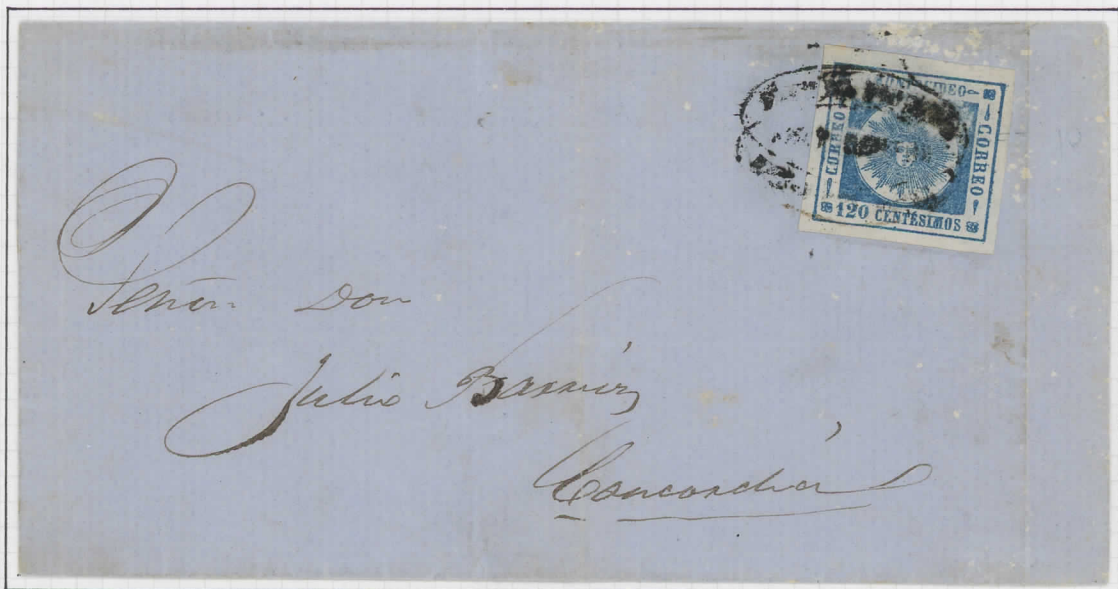 MONTEVIDEO
CORREO
CORREO
120 CENTÉSIMOS
Señor Don
Julio
Concordia